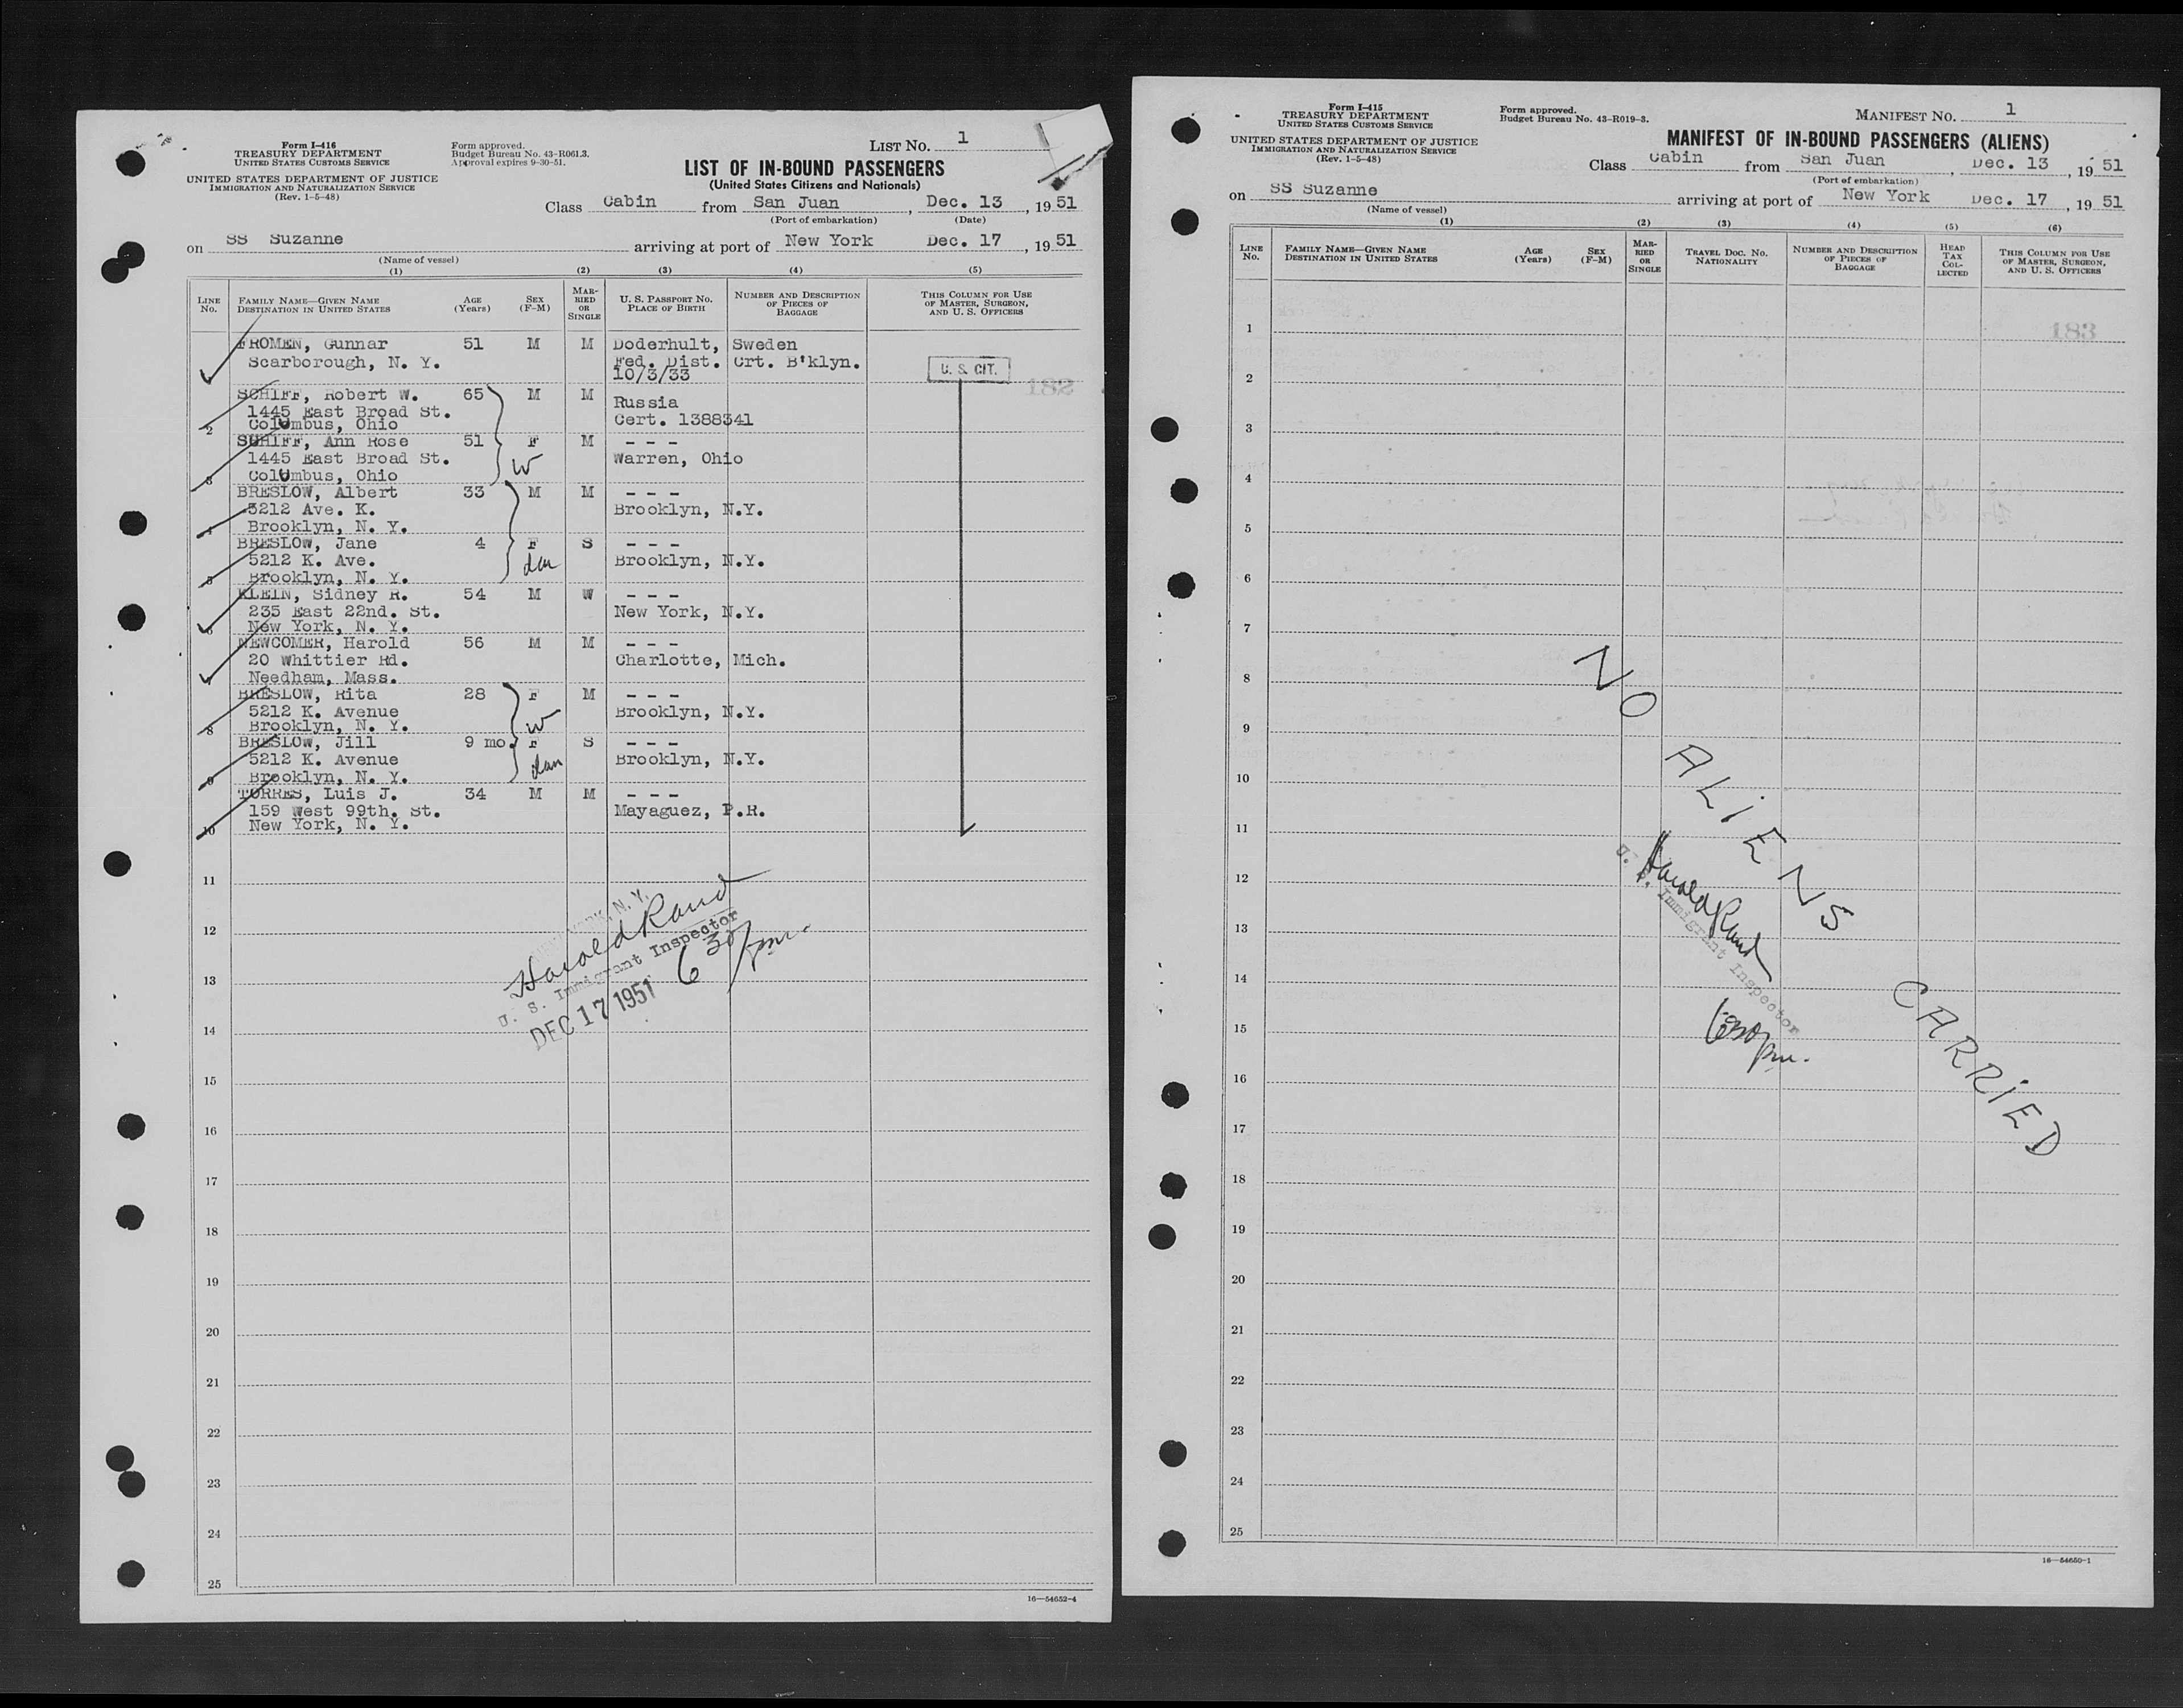 Form I-416
TREASURY DEPARTMENT
UNITED STATES CUSTOMS SERVICE
UNITED STATES DEPARTMENT OF JUSTICE
IMMIGRATION AND NATURALIZATION SERVICE
(Rev. 1-5-48)
Form approved.
Budget Bureau No. 43-R061.3.
Approval expires 9-30-51.
LIST NO. 1
LIST OF IN-BOUND PASSENGERS
(United States Citizens and Nationals)
Class Cabin from San Juan, Dec. 13, 1951
(Port of embarkation) (Date)
on SS Suzanne arriving at port of New York Dec. 17, 1951
(Name of vessel)
(1) (2) (3) (4) (5)
LINE No. FAMILY NAME—GIVEN NAME DESTINATION IN UNITED STATES AGE (Years) SEX (F-M) MARRIED OR SINGLE U. S. PASSPORT NO. PLACE OF BIRTH NUMBER AND DESCRIPTION OF PIECES OF BAGGAGE THIS COLUMN FOR USE OF MASTER, SURGEON, AND U. S. OFFICERS
FROMEN, Gunnar 51 M M Doderhult, Sweden
Scarborough, N. Y. Fed. Dist. Crt. B'klyn.
10/3/33
U. S. CIT.
182
SCHIFF, Robert W. 65 M M Russia
1445 East Broad St. Cert. 1388341
2 Columbus, Ohio
SCHIFF, Ann Rose 51 F M - - -
1445 East Broad St. W Warren, Ohio
3 Columbus, Ohio
BRESLOW, Albert 33 M M - - -
5212 Ave. K. Brooklyn, N.Y.
4 Brooklyn, N. Y.
BRESLOW, Jane 4 F S - - -
5212 K. Ave. dau Brooklyn, N.Y.
5 Brooklyn, N. Y.
KLEIN, Sidney R. 54 M W - - -
235 East 22nd. St. New York, N.Y.
6 New York, N. Y.
NEWCOMER, Harold 56 M M - - -
20 Whittier Rd. Charlotte, Mich.
7 Needham, Mass.
BRESLOW, Rita 28 F M - - -
5212 K. Avenue W Brooklyn, N.Y.
8 Brooklyn, N. Y.
BRESLOW, Jill 9 mo. F S - - -
5212 K. Avenue dau Brooklyn, N.Y.
9 Brooklyn, N. Y.
TORRES, Luis J. 34 M M - - -
159 West 99th. St. Mayaguez, P.R.
10 New York, N. Y.
11
12
13
14
15
16
17
18
19
20
21
22
23
24
25
N. Y.
Harold Rand
U. S. Immigrant Inspector
6 30/pm.
DEC 17 1951
16—54652-4
Form I-415
TREASURY DEPARTMENT
UNITED STATES CUSTOMS SERVICE
UNITED STATES DEPARTMENT OF JUSTICE
IMMIGRATION AND NATURALIZATION SERVICE
(Rev. 1-5-48)
Form approved.
Budget Bureau No. 43-R019-3.
MANIFEST NO. 1
MANIFEST OF IN-BOUND PASSENGERS (ALIENS)
Class Cabin from San Juan, Dec. 13, 1951
(Port of embarkation)
on SS Suzanne arriving at port of New York Dec. 17, 1951
(Name of vessel)
(1) (2) (3) (4) (5) (6)
LINE No. FAMILY NAME—GIVEN NAME DESTINATION IN UNITED STATES AGE (Years) SEX (F-M) MARRIED OR SINGLE TRAVEL DOC. NO. NATIONALITY NUMBER AND DESCRIPTION OF PIECES OF BAGGAGE HEAD TAX COLLECTED THIS COLUMN FOR USE OF MASTER, SURGEON, AND U. S. OFFICERS
183
1
2
3
4
5
6
7
8
9
10
11
12
13
14
15
16
17
18
19
20
21
22
23
24
25
NO ALIENS CARRIED
Harold Rand
U. S. Immigrant Inspector
630 pm.
16—54650-1